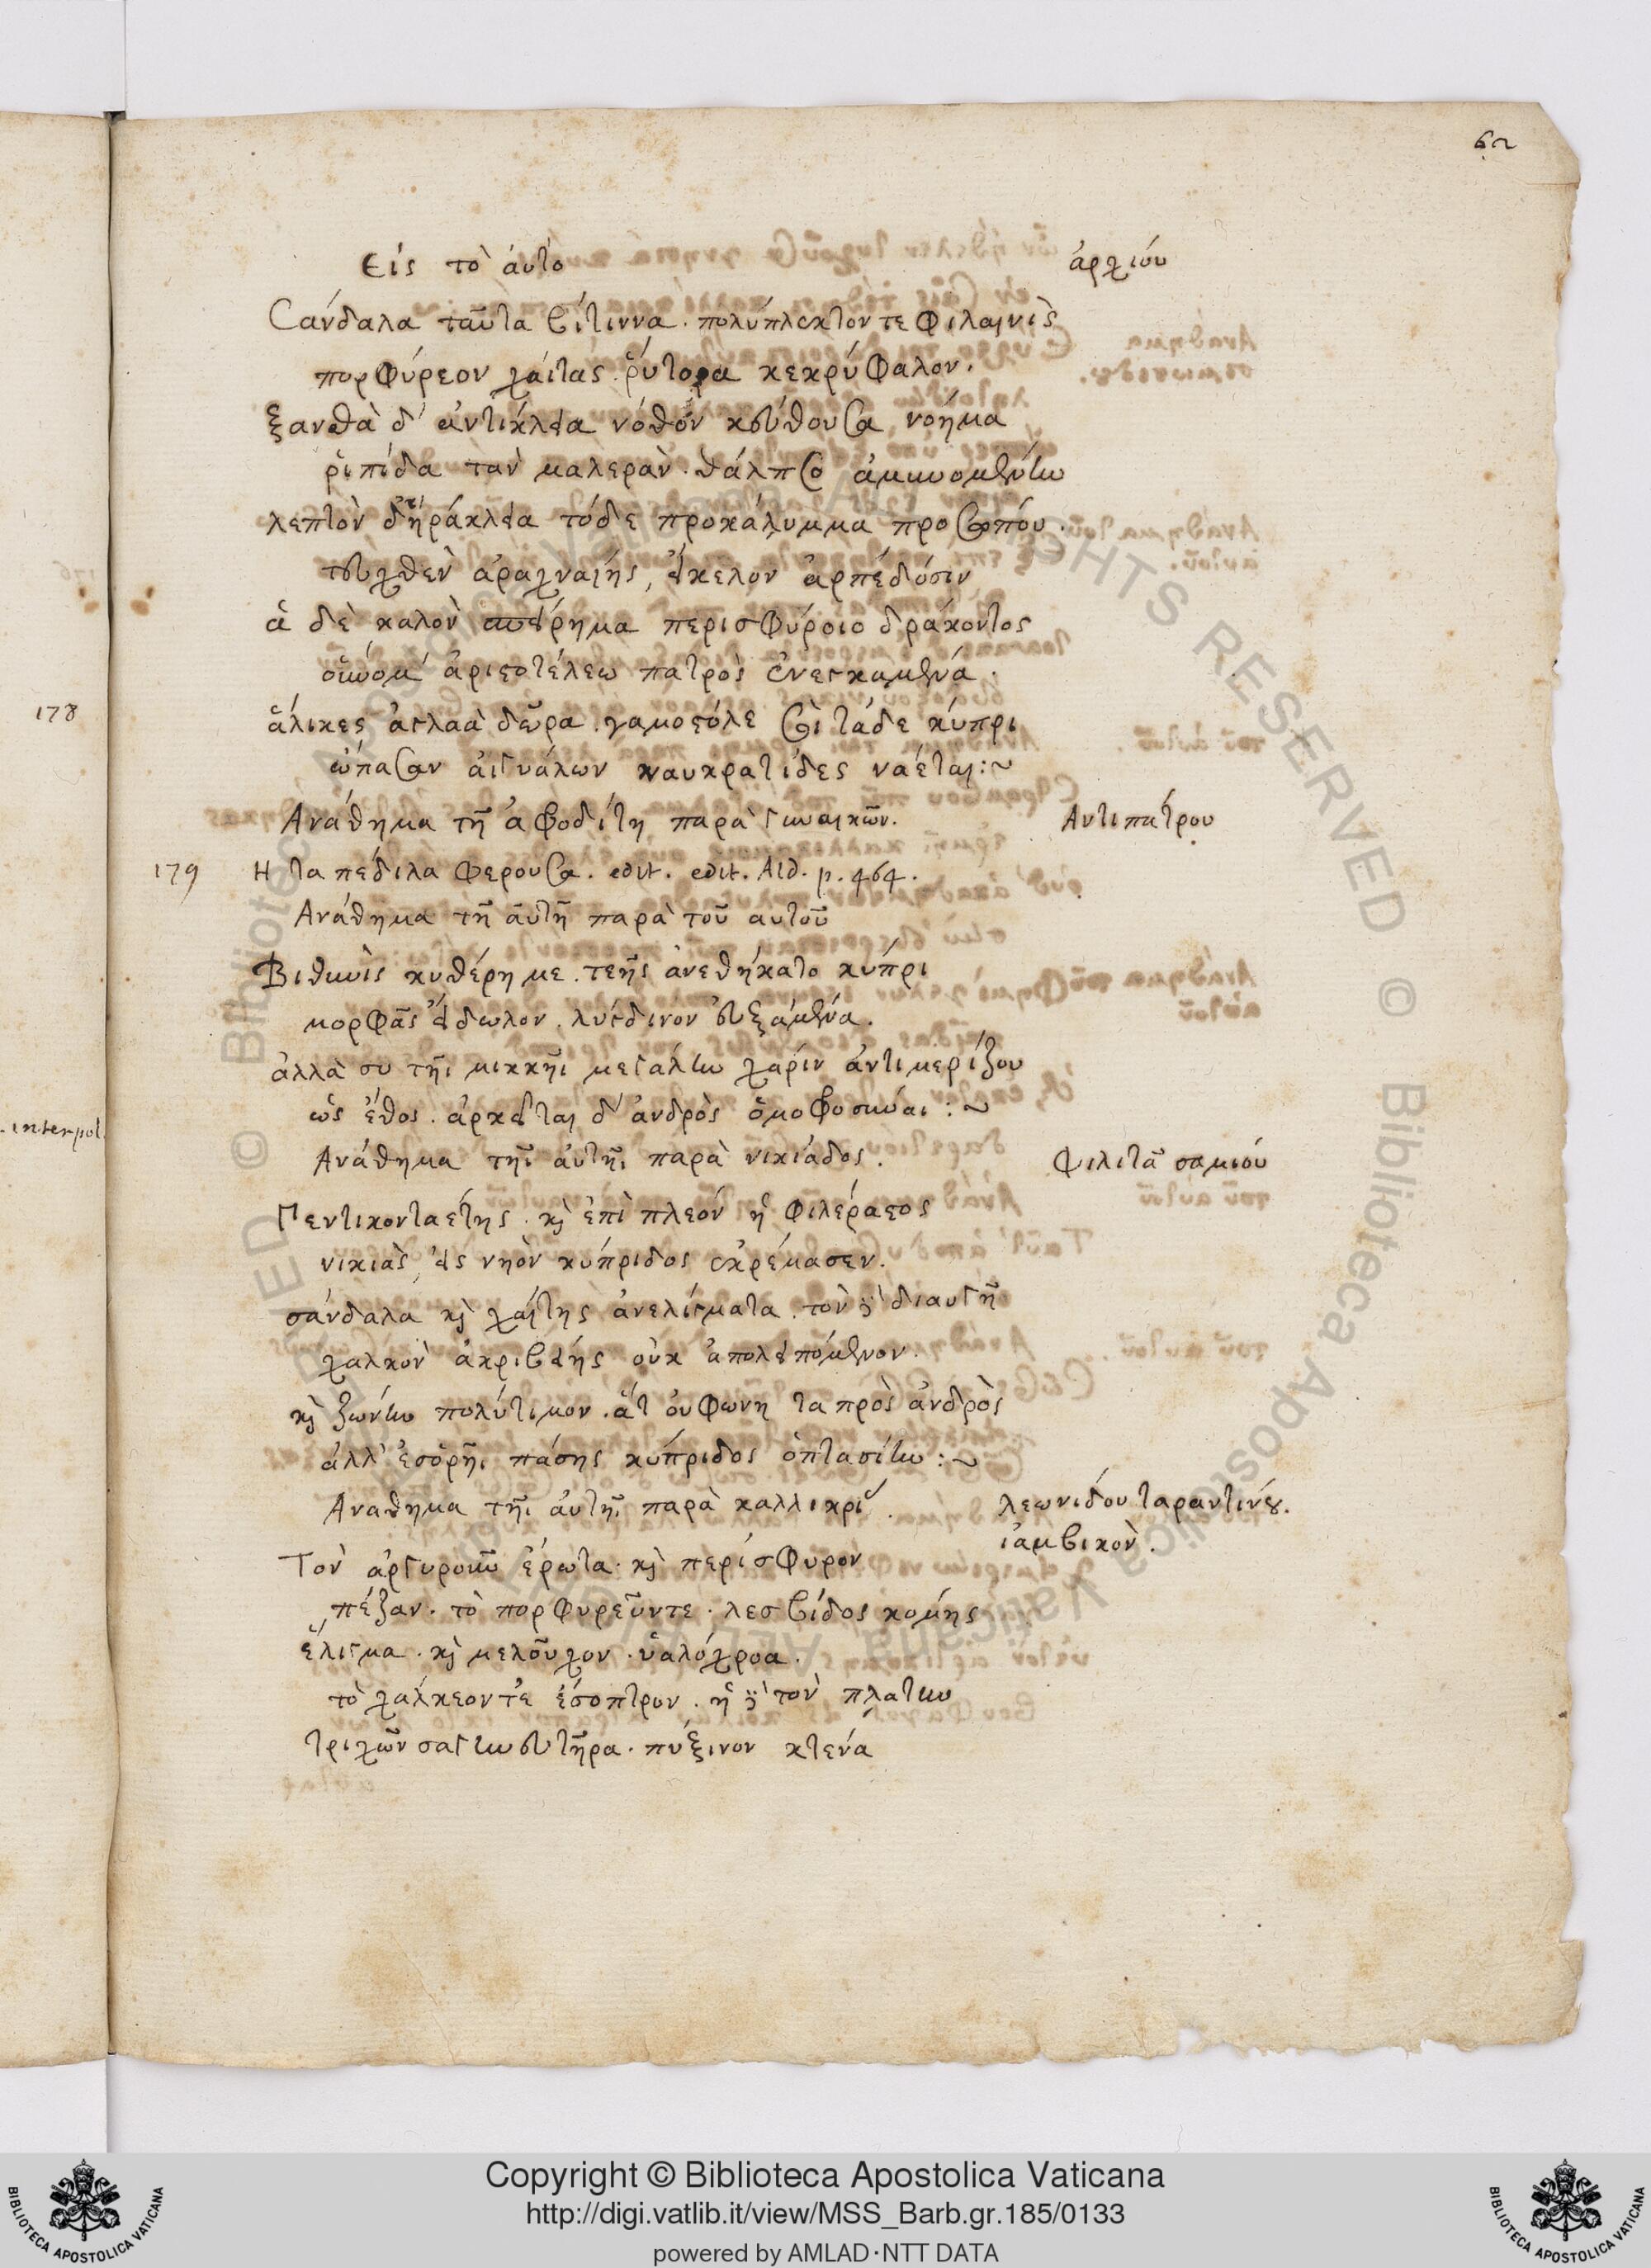 62
Εἰς τὸ ἀυτὸ ἀρχιόυ
Σάνδαλα ταῦτα βίτιννα. πολύπλεκτον τε Φιλαινὶς
πορφύρεον χάιτας. ῥύτορα κεκρύφαλον.
ξανθὰ δ' ἀντίκλεια νόθον κεύθουσα νοήμα
ῥιπίδα τὰν μαλερὰν. θάλπος ἀμυνομένην
λεπτὸν δ' ἡράκλεια τόδε προκάλυμμα προσώπου.
τευχθὲν ἀραχναίης, εἴκελον ἀρπέδόσιν
ἁ δὲ καλὸν σπείρημα περισφύροιο δράκοντος
οὔνομ' ἀριστοτέλεω πατρὸς ἐνεγκαμένα.
178
ἅλικες ἀγλαὰ δῶρα. γαμοστόλε σὸι τάδε κύπρι
ὤπασαν ἀιγυάλων ναυκρατίδες ναέται:~
Ανάθημα τῇ ἀφροδίτῃ παρὰ γυναικῶν. Αντιπάτρου
179 Η τα πέδιλα φερουσα. edit. edit. Ald. p. 464.
Ανάθημα τῇ ἀυτῇ παρὰ τοῦ αυτοῦ
Βιθυνὶς κυθέρη με. τεῆς ἀνεθήκατο κύπρι
μορφᾶς εἴδωλον. λύγδινον εὐξάμένα.
ἀλλὰ συ τῆι μικκῆι μεγάλην χάριν ἀντιμερίζου
ὡς ἔθος. ἀρκεῖται δ' ἀνδρὸς ὁμοφροσύναι:~
.interpol.
Ανάθημα τῆι ἀυτῆι παρὰ νικιάδος. Φιλιτᾶ σαμιόυ
Πεντικονταέτης. κὶ ἐπὶ πλεόν ἡ φιλέραστος
νικιὰς, εἰς νηὸν κύπριδος ἐκρέμασεν.
σάνδαλα κὶ χαίτης ἀνελίγματα. τὸν δὲ διαυγῆ
χαλκὸν ἀκριβείης οὐκ ἀπολειπόμενον.
κὶ ζώνην πολύτιμον. ἅτ ὀυ φωνῃ τα πρὸς ἀνδρὸς
ἀλλ' ἐσορῆι πάσης κύπριδος ὀπτασίην:~
Αναθημα τῆι ἀυτῆι παρὰ καλλικρί. λεωνιδου ταραντινου.
ἰαμβικὸν.
Τὸν ἀργυροῦν ἐρωτα. κὶ περίσφυρον
πέζαν. τὸ πορφυρεῦντε. λεσβίδος κομής
ἕλιγμα. κὶ μελοῦχον. ὑαλόχροα.
τὸ χαλκεον τὲ ἐσοπτρον. ἡ δὲ τὸν πλατυν
τριχῶν σαγηνευτῆρα. πύξινον κτενά
Copyright © Biblioteca Apostolica Vaticana
http://digi.vatlib.it/view/MSS_Barb.gr.185/0133
powered by AMLAD·NTT DATA
BIBLIOTECA APOSTOLICA VATICANA
BIBLIOTECA APOSTOLICA VATICANA